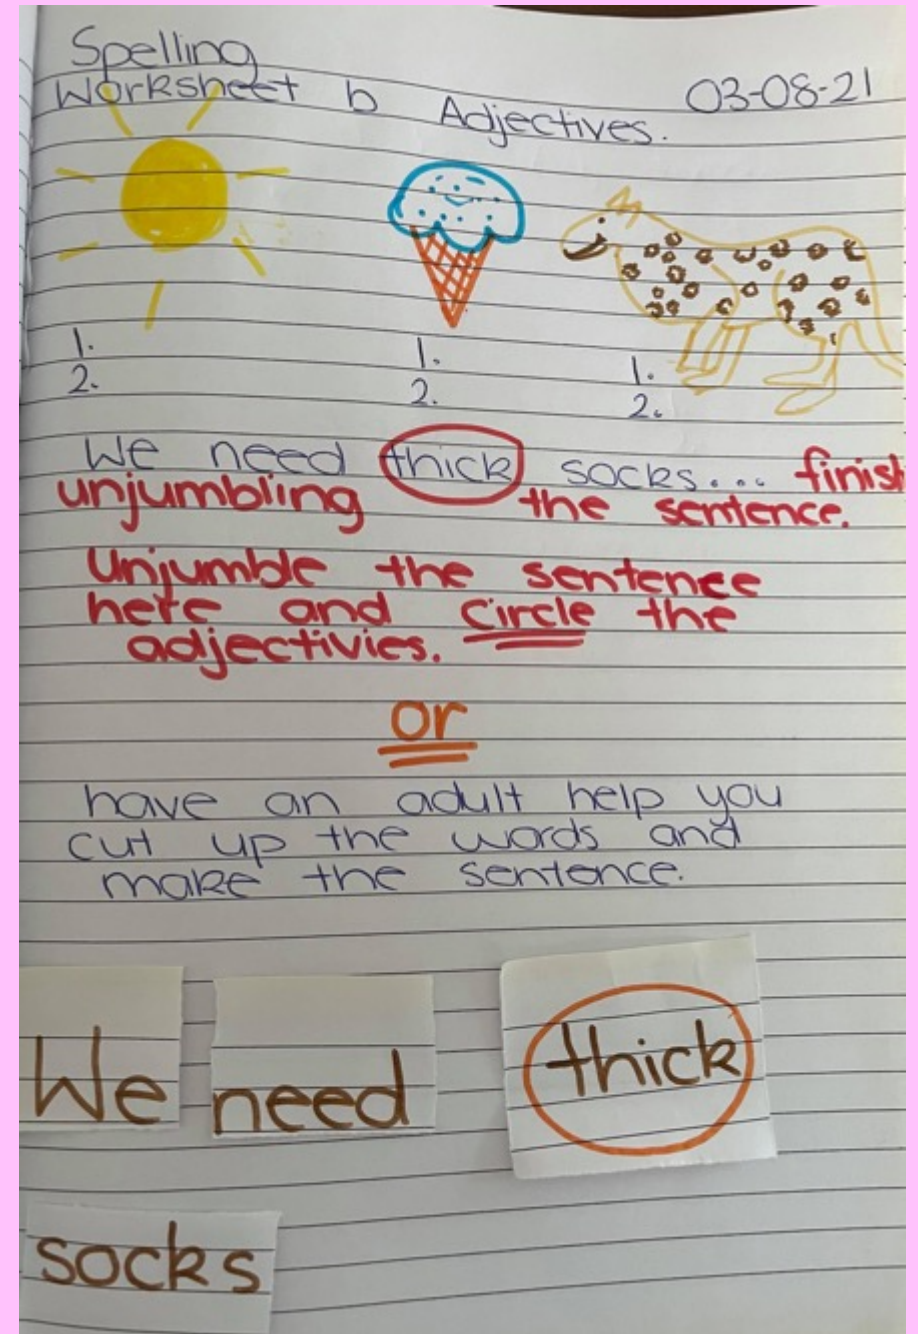 Spelling
Worksheet b Adjectives. 03-08-21
1.
2.
1.
2.
1.
2.
We need thick socks... finish
unjumbling the sentence.
Unjumble the sentence
here and circle the
adjectivies.
or
have an adult help you
cut up the words and
make the sentence.
We need thick
socks